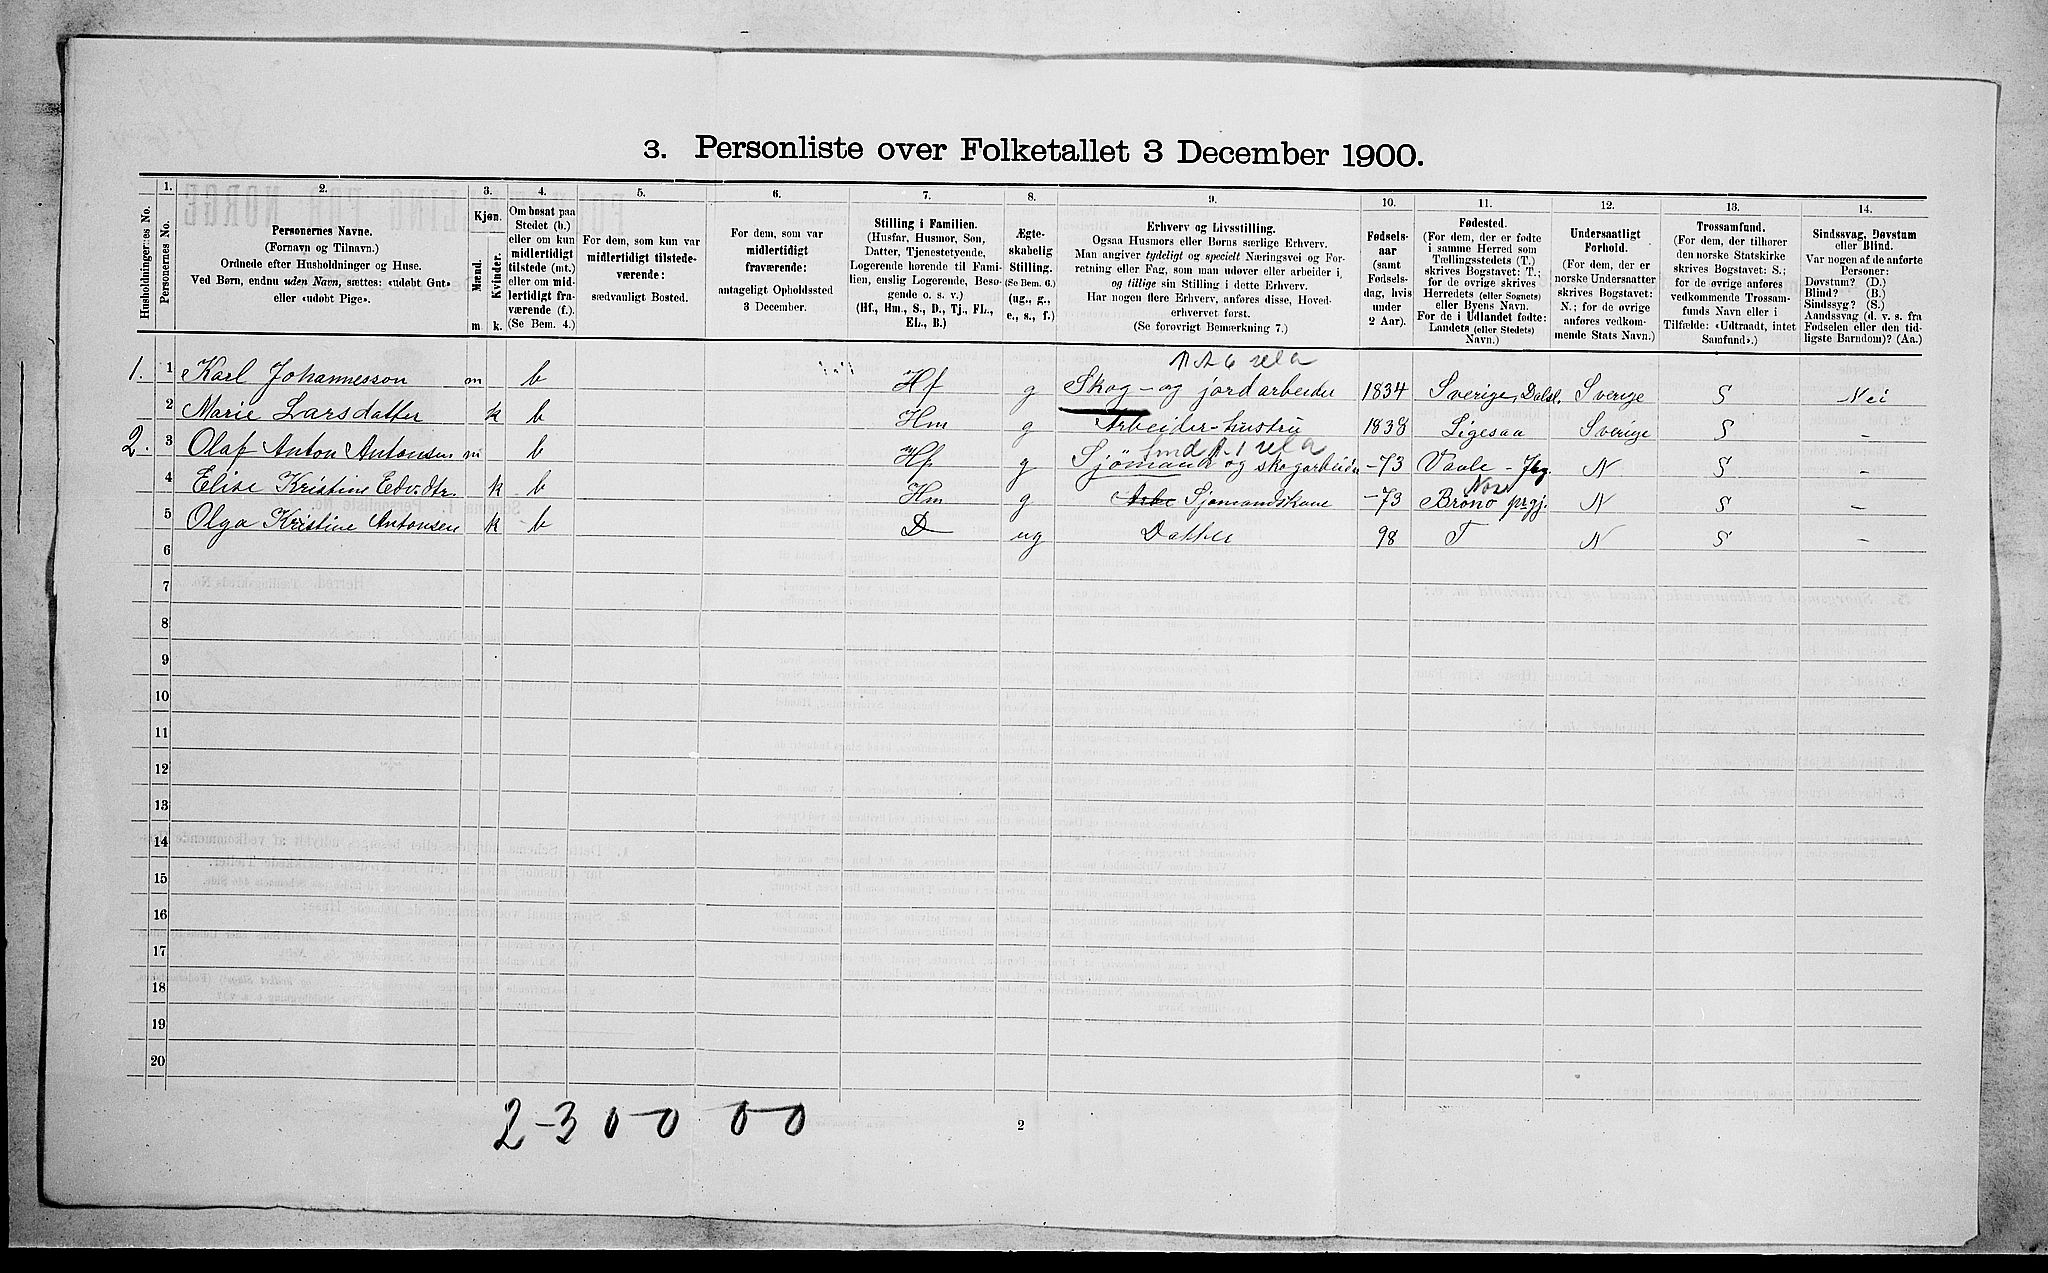 3. Personliste over Folketallet 3 December 1900.
Husholdningernes No.
1. Personernes No.
2. Personernes Navne.
(Fornavn og Tilnavn.)
Ordnede efter Husholdninger og Huse.
Ved Børn, endnu uden Navn, sættes: «udøbt Gut»
eller «udøbt Pige».
3. Kjøn.
Mænd. Kvinder.
m k.
4. Om bosat paa
Stedet (b.)
eller om kun
midlertidigt
tilstede (mt.)
eller om mid-
lertidigt fra-
værende (f.).
(Se Bem. 4.)
5. For dem, som kun var
midlertidigt tilstede-
værende:
sædvanligt Bosted.
6. For dem, som var
midlertidigt
fraværende:
antageligt Opholdssted
3 December.
7. Stilling i Familien.
(Husfar, Husmor, Søn,
Datter, Tjenestetyende,
Logerende hørende til Fami-
lien, enslig Logerende, Besø-
gende o. s. v.)
(Hf., Hm., S., D., Tj., FL.,
EL., B.)
8. Ægte-
skabelig
Stilling.
(Se Bem. 6.)
(ug., g.,
e., s., f.)
9. Erhverv og Livsstilling.
Ogsaa Husmors eller Børns særlige Erhverv.
Man angiver tydeligt og specielt Næringsvei og For-
retning eller Fag, som man udøver eller arbeider i,
og tillige sin Stilling i dette Erhverv.
Har nogen flere Erhverv, anføres disse, Hoved-
erhvervet først.
(Se forøvrigt Bemærkning 7.)
10. Fødsels-
aar
(samt
Fødsels-
dag, hvis
under
2 Aar).
11. Fødested.
(For dem, der er fødte
i samme Herred som
Tællingsstedets (T.)
skrives Bogstavet: T.;
for de øvrige skrives
Herredets (eller Sognets)
eller Byens Navn.
For de i Udlandet fødte:
Landets (eller Stedets)
Navn.)
12. Undersaatligt
Forhold.
(For dem, der er
norske Undersaatter
skrives Bogstavet:
N.; for de øvrige
anføres vedkom-
mende Stats Navn.)
13. Trossamfund.
(For dem, der tilhører
den norske Statskirke
skrives Bogstavet: S.;
for de øvrige anføres
vedkommende Trossam-
funds Navn eller i
Tilfælde: «Udtraadt, intet
Samfund».)
14. Sindssvag, Døvstum
eller Blind.
Var nogen af de anførte
Personer:
Døvstum? (D.)
Blind? (B.)
Sindssyg? (S.)
Aandssvag (d. v. s. fra
Fødselen eller den tid-
ligste Barndom)? (Aa.)
1. 1 Karl Johannesson m b Hf g Skog- og jordarbeider 1834 Sverige, Dalsl. Sverige S Nei
2 Marie Larsdatter k b Hm g Arbeider-hustru 1838 Ligesaa Sverige S –
2. 3 Olaf Anton Antonsen m b Hf g Sjømand og skogarbeider –73 Vaale – N S –
4 Elise Kristine Edv.dtr. k b Hm g Arbe Sjømandskone –73 Brönö prgj. N S –
5 Olga Kristine Antonsen k b D ug Datter 98 T N S –
6
7
8
9
10
11
12
13
14
15
16
17
18
19
20
2–3 0–0 0–0
2